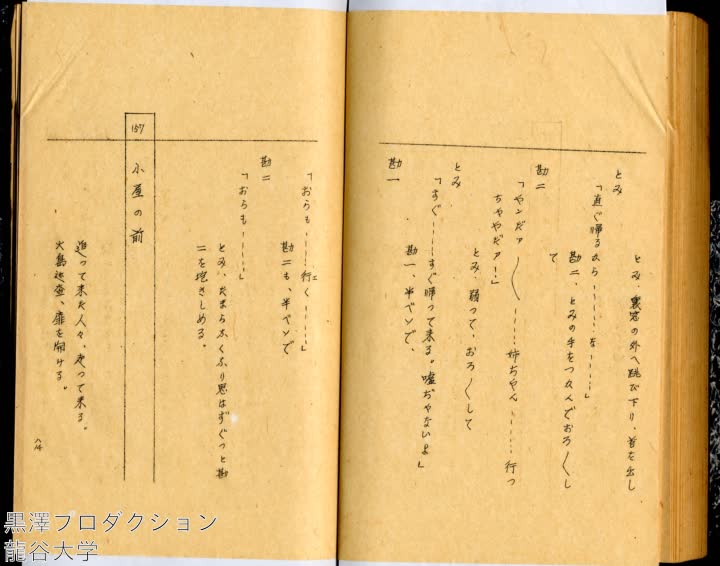 とみ、裏窓の外へ跳び下り、首を出し
て
とみ
「直ぐ帰るから……な……」
勘二、とみの手をつかんでおろ〱し
て
勘二
「やンだァ〱……姉ちやん……行っ
ちややだァ！」
とみ、蹲って、おろ〱して
とみ
「すぐ……すぐ帰って来る。嘘ぢやないよ」
勘一
勘一、半ベソで、
「おらも……行く……」
勘二も、半ベソで
勘二
「おらも……」
とみ、たまらなくなり思はずぐっと勘
二を抱きしめる。
157
小屋の前
追って来た人々、走って来る。
火島巡査、扉を開ける。
八十
黒澤プロダクション
龍谷大学